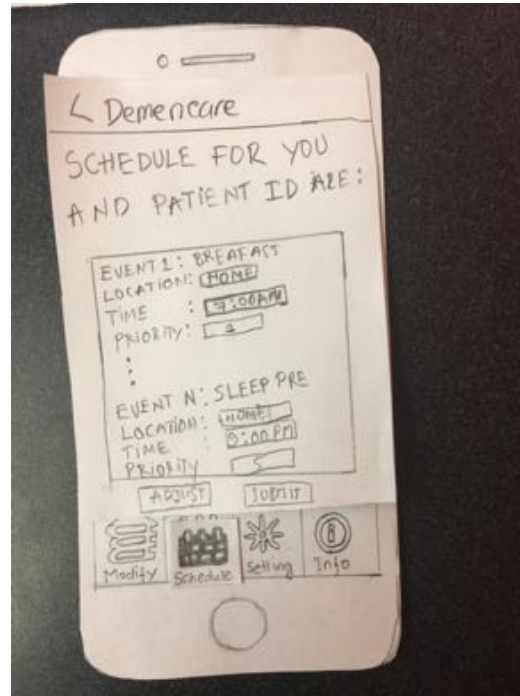 < Demencare
SCHEDULE FOR YOU
AND PATIENT ID ARE:
EVENT 1: BREAFAST
LOCATION: HOME
TIME : 7:00AM
PRIORITY: 1
EVENT N: SLEEP PRE
LOCATION: HOME
TIME : :00 PM
PRIORITY 5
ADJUST SUBMIT
Modify Schedule Setting Info